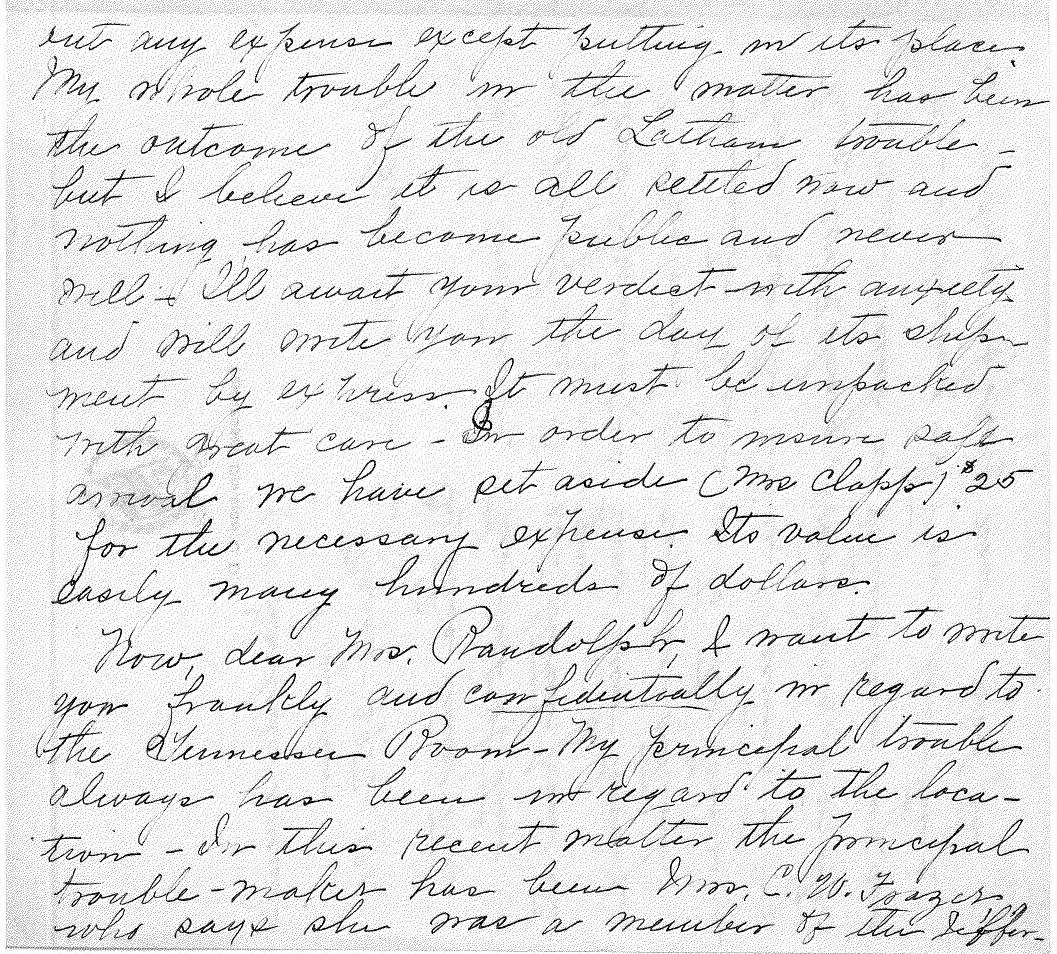 out any expense except putting in its place.
My whole trouble in the matter has been
the outcome of the old Latham trouble -
but I believe it is all settled now and
nothing has become public and never
will - I'll await your verdict with anxiety
and will write you the day of its ship-
ment by express. It must be unpacked
with great care - In order to insure safe
arrival we have set aside (Mrs Clapp) $25
for the necessary expense. Its value is
easily many hundreds of dollars.
Now, dear Mrs. Randolph, I want to write
you frankly and confidentially in regard to
the Tennessee Room - My principal trouble
always has been in regard to the loca-
tion - In this recent matter the principal
trouble-maker has been Mrs. C. W. Frazer
who says she was a member of the Jeffer-